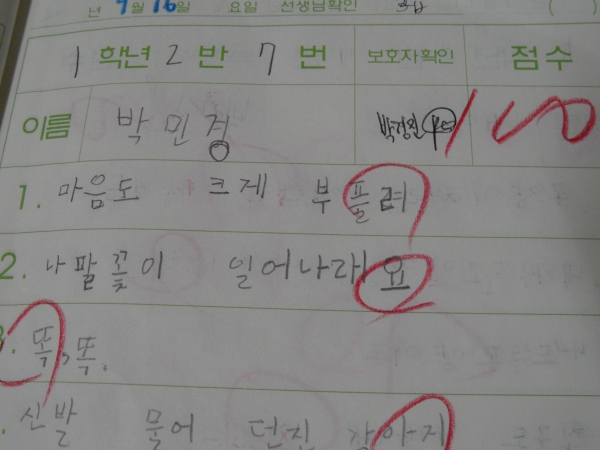 년 9월 16일 요일 선생님확인 ( )
1 학년 2 반 7 번 보호자확인 점수
이름 박민경 100
1. 마음도 크게 부풀려
2. 나팔꽃이 일어나래요
3. 똑, 똑.
신발 물어 던진 강아지